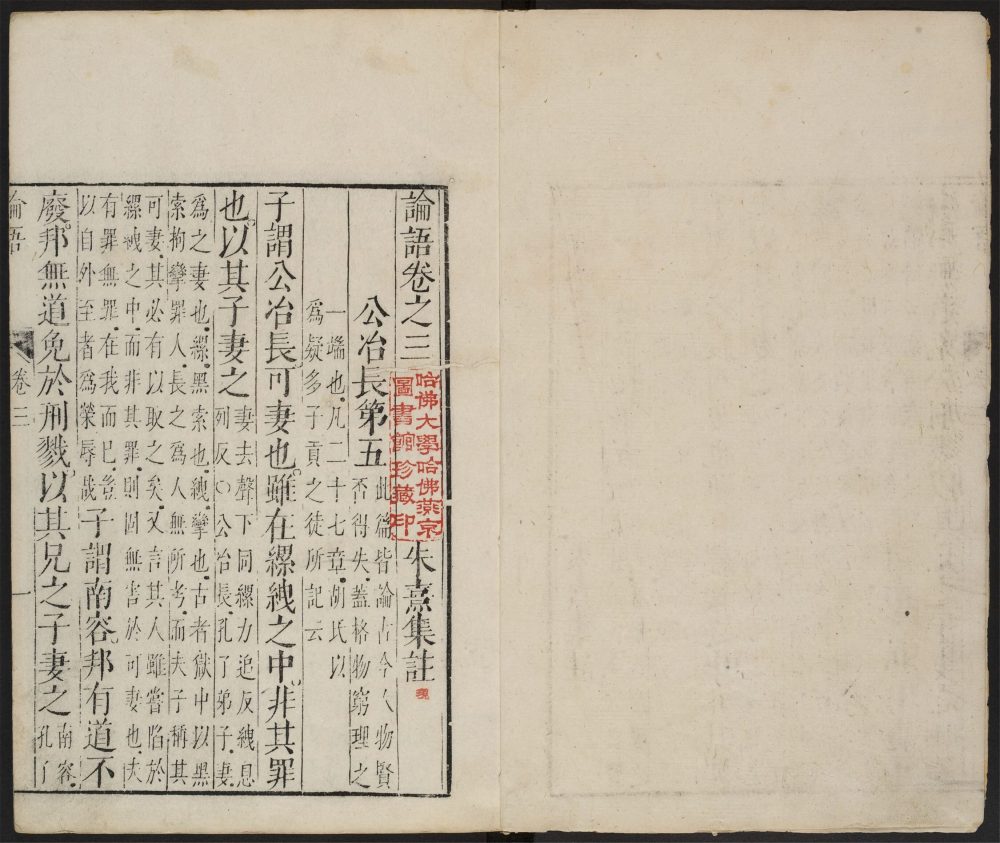 論語卷之三
朱熹集註
哈佛大學哈佛燕京
圖書館珍藏印
公冶長第五
此篇皆論古今人物賢
否得失蓋格物窮理之
一端也凡二十七章胡氏以
爲疑多子貢之徒所記云
子謂公冶長可妻也雖在縲絏之中非其罪
也以其子妻之
妻去聲下同縲力追反絏息
列反○公冶長孔子弟子妻
爲之妻也縲黑索也絏攣也古者獄中以黑
索拘攣罪人長之爲人無所考而夫子稱其
可妻其必有以取之矣又言其人雖嘗陷於
縲絏之中而非其罪則固無害於可妻也夫
有罪無罪在我而已豈
以自外至者爲榮辱哉
子謂南容邦有道不
廢邦無道免於刑戮以其兄之子妻之
南容
孔子
論語
卷三
一